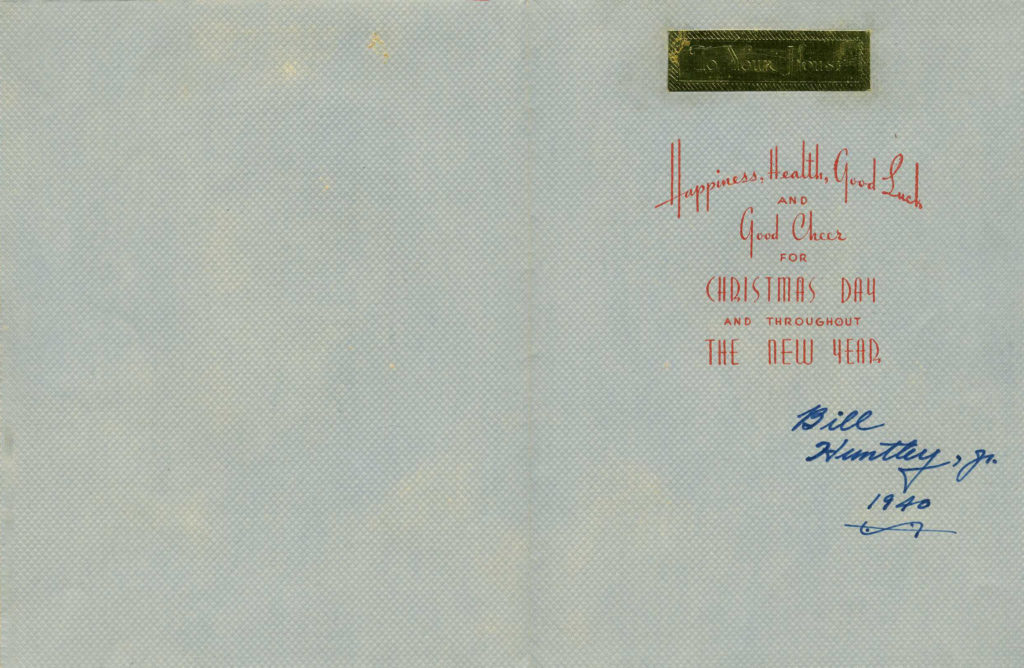 To Your House
Happiness, Health, Good Luck
AND
Good Cheer
FOR
CHRISTMAS DAY
AND THROUGHOUT
THE NEW YEAR
Bill
Huntley, Jr.
1940